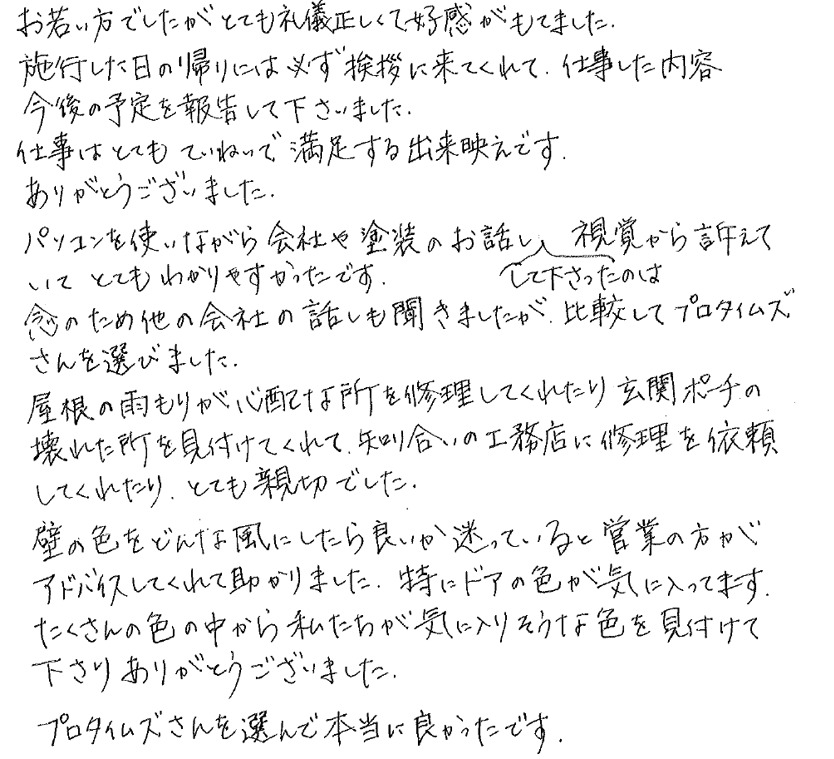 お若い方でしたがとても礼儀正しくて好感がもてました.
施行した日の帰りには必ず挨拶に来てくれて、仕事した内容
今後の予定を報告して下さいました.
仕事はとてもていねいで、満足する出来映えです.
ありがとうございました.
パソコンを使いながら会社や塗装のお話し 視覚から訴えて
して下さったのは
いて とてもわかりやすかったです.
念のため他の会社の話しも聞きましたが、比較してプロタイムズ
さんを選びました.
屋根の雨もりが心配な所を修理してくれたり 玄関ポーチの
壊れた所を見付けてくれて、知り合いの工務店に修理を依頼
してくれたり、とても親切でした.
壁の色をどんな風にしたら良いか迷っていると営業の方が
アドバイスしてくれて助かりました. 特にドアの色が気に入ってます.
たくさんの色の中から私たちが気に入りそうな色を見付けて
下さりありがとうございました.
プロタイムズさんを選んで本当に良かったです.